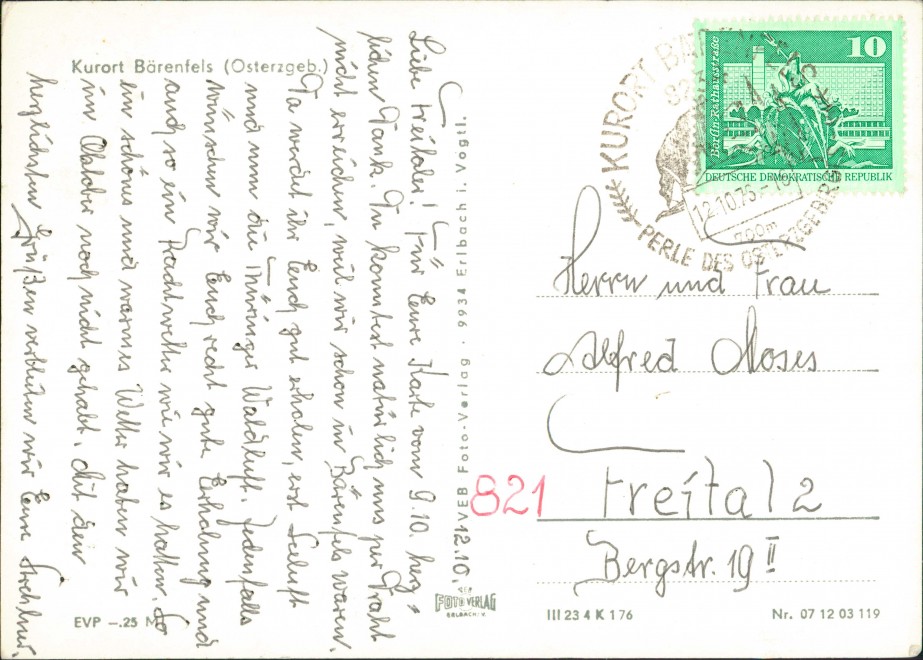 Kurort Bärenfels (Osterzgeb.)
12.10.
Liebe Freitaler! Für Eure Karte vom 9.10. herz-
lichen Dank. Ihr konntet natürlich uns per Draht
nicht erreichen, weil wir schon in Bärenfels waren.
Da werdet ihr Euch gut erholen, erst Seeluft
und nun die Thüringer Waldluft. Jedenfalls
wünschen wir Euch recht gute Erholung und
auch so ein Prachtwetter wie wir es hatten. So
ein schönes und warmes Wetter haben wir
im Oktober noch nicht gehabt. Mit den
herzlichsten Grüßen verbleiben wir Eure
EVP –.25 M
VEB Foto-Verlag · 9934 Erlbach i. Vogtl.
VEB
FOTO VERLAG
ERLBACH V.
10
Berlin-Rathausstraße
DEUTSCHE DEMOKRATISCHE REPUBLIK
KURORT BÄRENFELS
12.10.76-10
700m
PERLE DES OSTERZGEBIRGES
Herrn und Frau
Alfred Moses
821 Freital 2
Bergstr. 19 II
III 23 4 K 176
Nr. 07 12 03 119